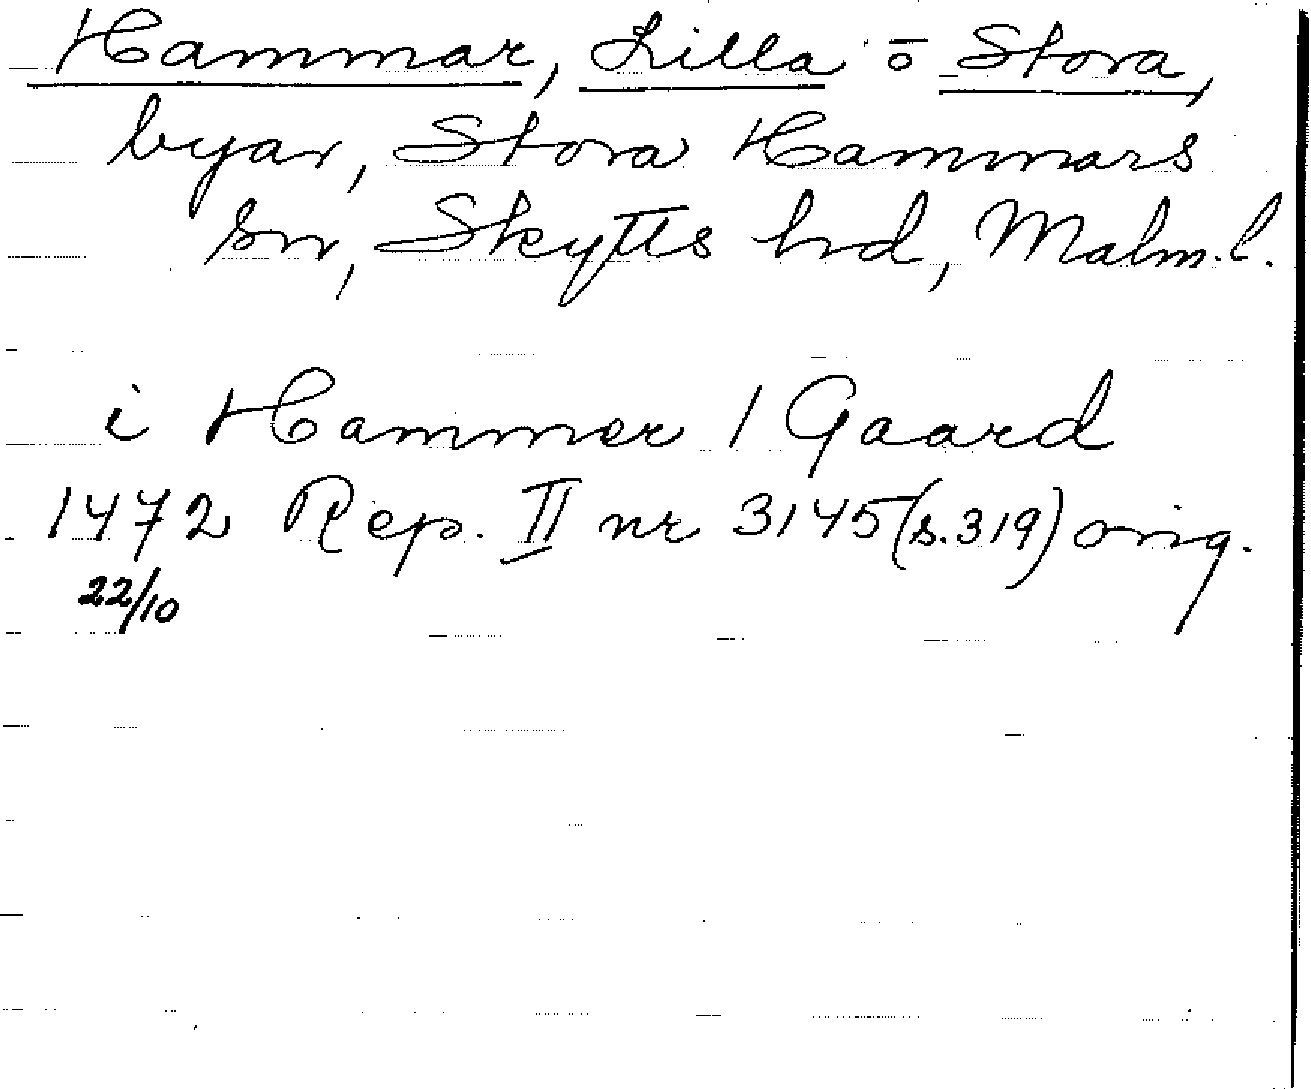 Hammar, Lilla o Stora,
byar, Stora Hammars
sn, Skytts hd, Malm.l.
i Hammer 1 Gaard
1472 Rep. II nr 3145 (s.319) orig.
22/10